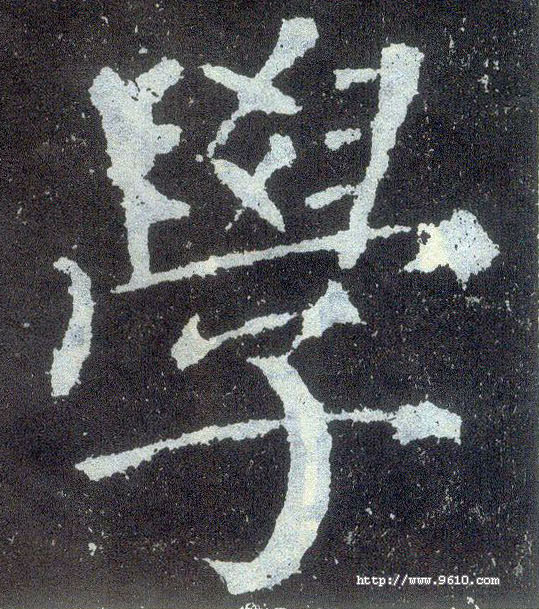 學
http://www.9610.com